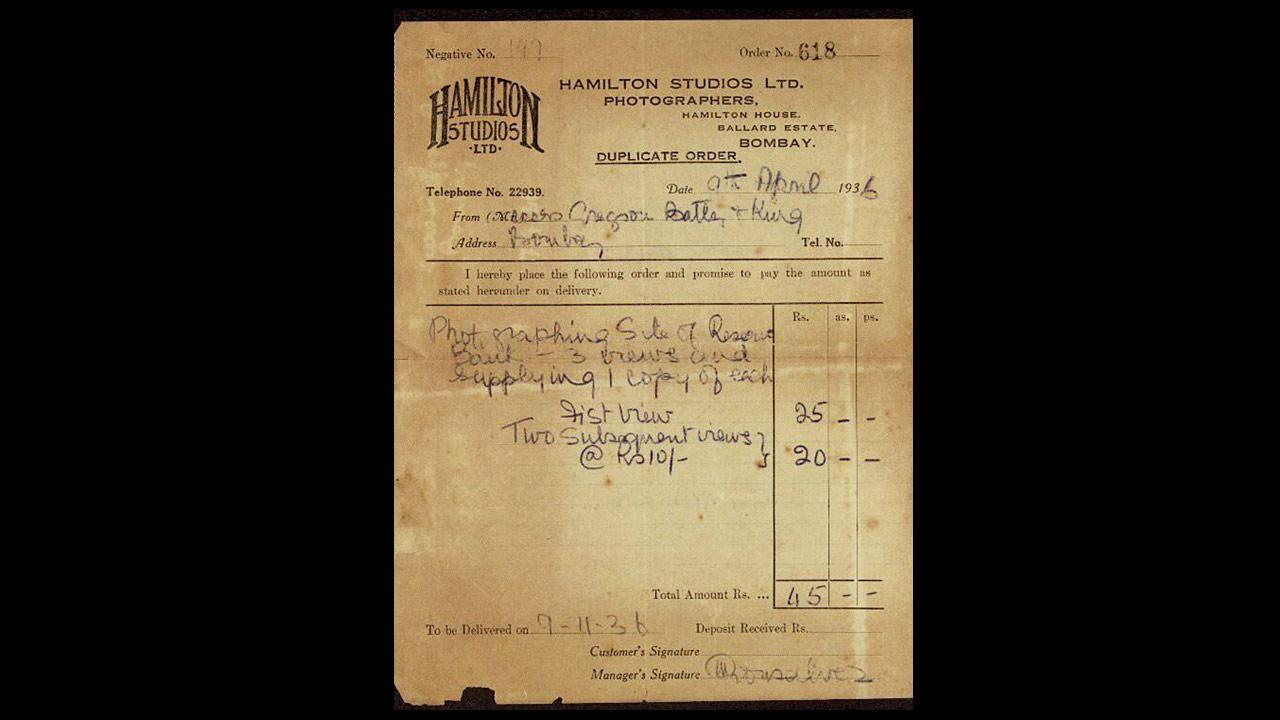 Negative No. 147
Order No. 618
HAMILTON STUDIOS ·LTD·
HAMILTON STUDIOS LTD.
PHOTOGRAPHERS,
HAMILTON HOUSE.
BALLARD ESTATE,
BOMBAY.
DUPLICATE ORDER.
Telephone No. 22939.
Date 9th April 1936
From (Messrs Gregson Batley & King
Address Bombay Tel. No.
I hereby place the following order and promise to pay the amount as
stated hereunder on delivery.
Rs. as. ps.
Photographing Site of Reserve
Bank - 3 views and
supplying 1 copy of each
First View 25 - -
Two Subsequent views }
@ Rs10/- 20 - -
Total Amount Rs. ... 45 - -
To be Delivered on 7-11-36 Deposit Received Rs.
Customer's Signature
Manager's Signature